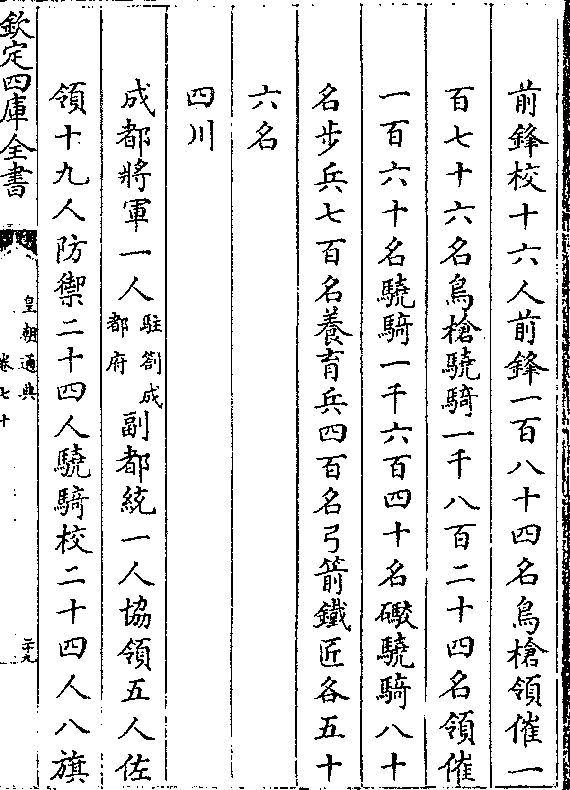 前鋒校十六人前鋒一百八十四名鳥槍領催一
百七十六名鳥槍驍騎一千八百二十四名領催
一百六十名驍騎一千六百四十名礮驍騎八十
名步兵七百名養育兵四百名弓箭鐵匠各五十
六名
四川
成都將軍一人駐劄成都府副都統一人協領五人佐
領十九人防禦二十四人驍騎校二十四人八旗
欽定四庫全書
皇朝通典
卷七十
二十九